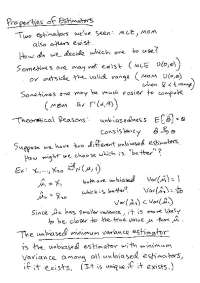 Properties of Estimators
Two estimators we've seen: MLE, MOM
also others exist
How do we decide which one to use?
Sometimes one may not exist (MLE U(0,θ))
or outside the valid range (MOM U(0,θ)
Sometimes one may be much easier to compute
(MOM for Γ(α,β))
Theoretical Reasons: unbiasedness E[θ̂] = θ
Consistency
Suppose we have two different unbiased estimators
How might we choose which is "better"?
Ex: X₁, ..., X₁₀ N(μ,1)
μ̂₁ = X₁ both are unbiased Var(μ̂₁) = 1
which is better? Var(μ̂₂) = 1/10
Var(μ̂₂) < Var(μ̂₁)
Since μ̂₂ has smaller variance, it is more likely
to be closer to the true value μ than μ̂₁.
The unbiased minimum variance estimator
is the unbiased estimator with minimum
variance among all unbiased estimators,
if it exists. (It is unique if it exists.)